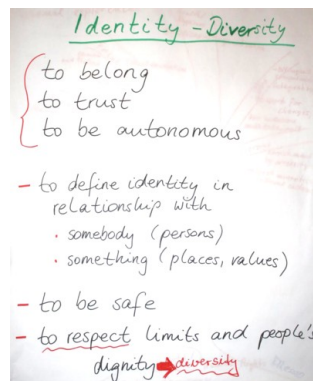 Identity - Diversity
to belong
to trust
to be autonomous
- to define identity in
relationship with
• somebody (persons)
• something (places, values)
- to be safe
- to respect limits and people's
dignity → diversity